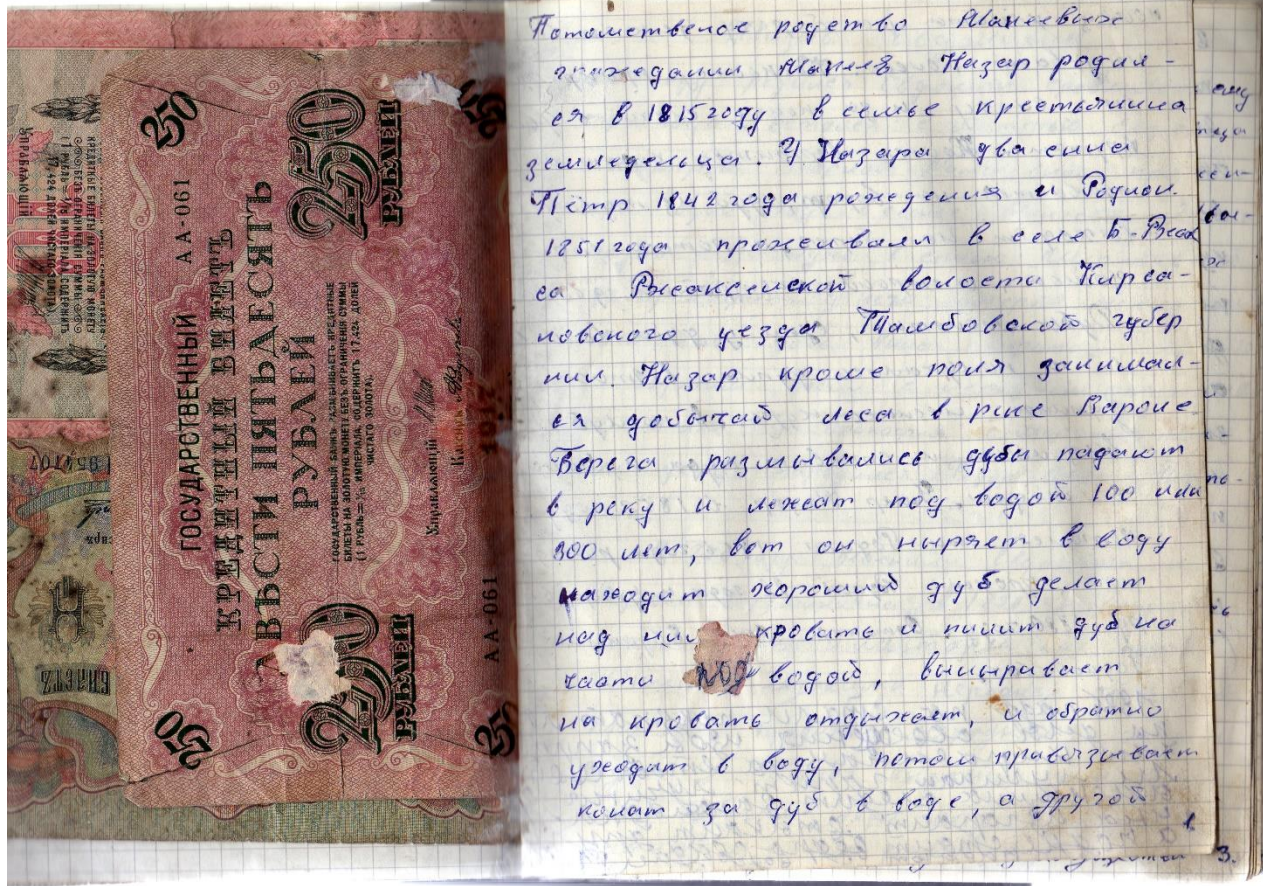 ГОСУДАРСТВЕННЫЙ АА-061
КРЕДИТНЫЙ БИЛЕТЪ
ДВѢСТИ ПЯТЬДЕСЯТЪ
РУБЛЕЙ
ГОСУДАРСТВЕННЫЙ БАНКЪ РАЗМѢНИВАЕТЪ КРЕДИТНЫЕ
БИЛЕТЫ НА ЗОЛОТУЮ МОНЕТУ БЕЗЪ ОГРАНИЧЕНІЯ СУММЫ
(1 РУБЛЬ = 1/15 ИМПЕРІАЛА, СОДЕРЖИТЪ 17,424 ДОЛЕЙ
ЧИСТАГО ЗОЛОТА).
Управляющій
Кассиръ
1917
250 РУБЛЕЙ
250 РУБЛЕЙ
250
250
250
АА-061
БИЛЕТЪ
Управляющій
Потомственое родство Макеевых
гражданин Макеев Назар родил-
ся в 1815 году в семье крестьянина
земледельца. У Назара два сына
Пётр 1842 года рождения и Родион
1851 года проживали в селе Б-Ржак
са Ржаксенской волости Кирса-
новского уезда Тамбовской губер
нии. Назар кроме поля занимал-
ся добычай леса в реке Вароне
Берега размывались дубы падают
в реку и лежат под водой 100 или
300 лет, вот он ныряет в воду
находит хороший дуб делает
над ним кровать и пилит дуб на
части под водой, выныривает
на кровать отдыхает, и обратно
уходит в воду, потом привязывает
канат за дуб в воде, а другой
1.
3.